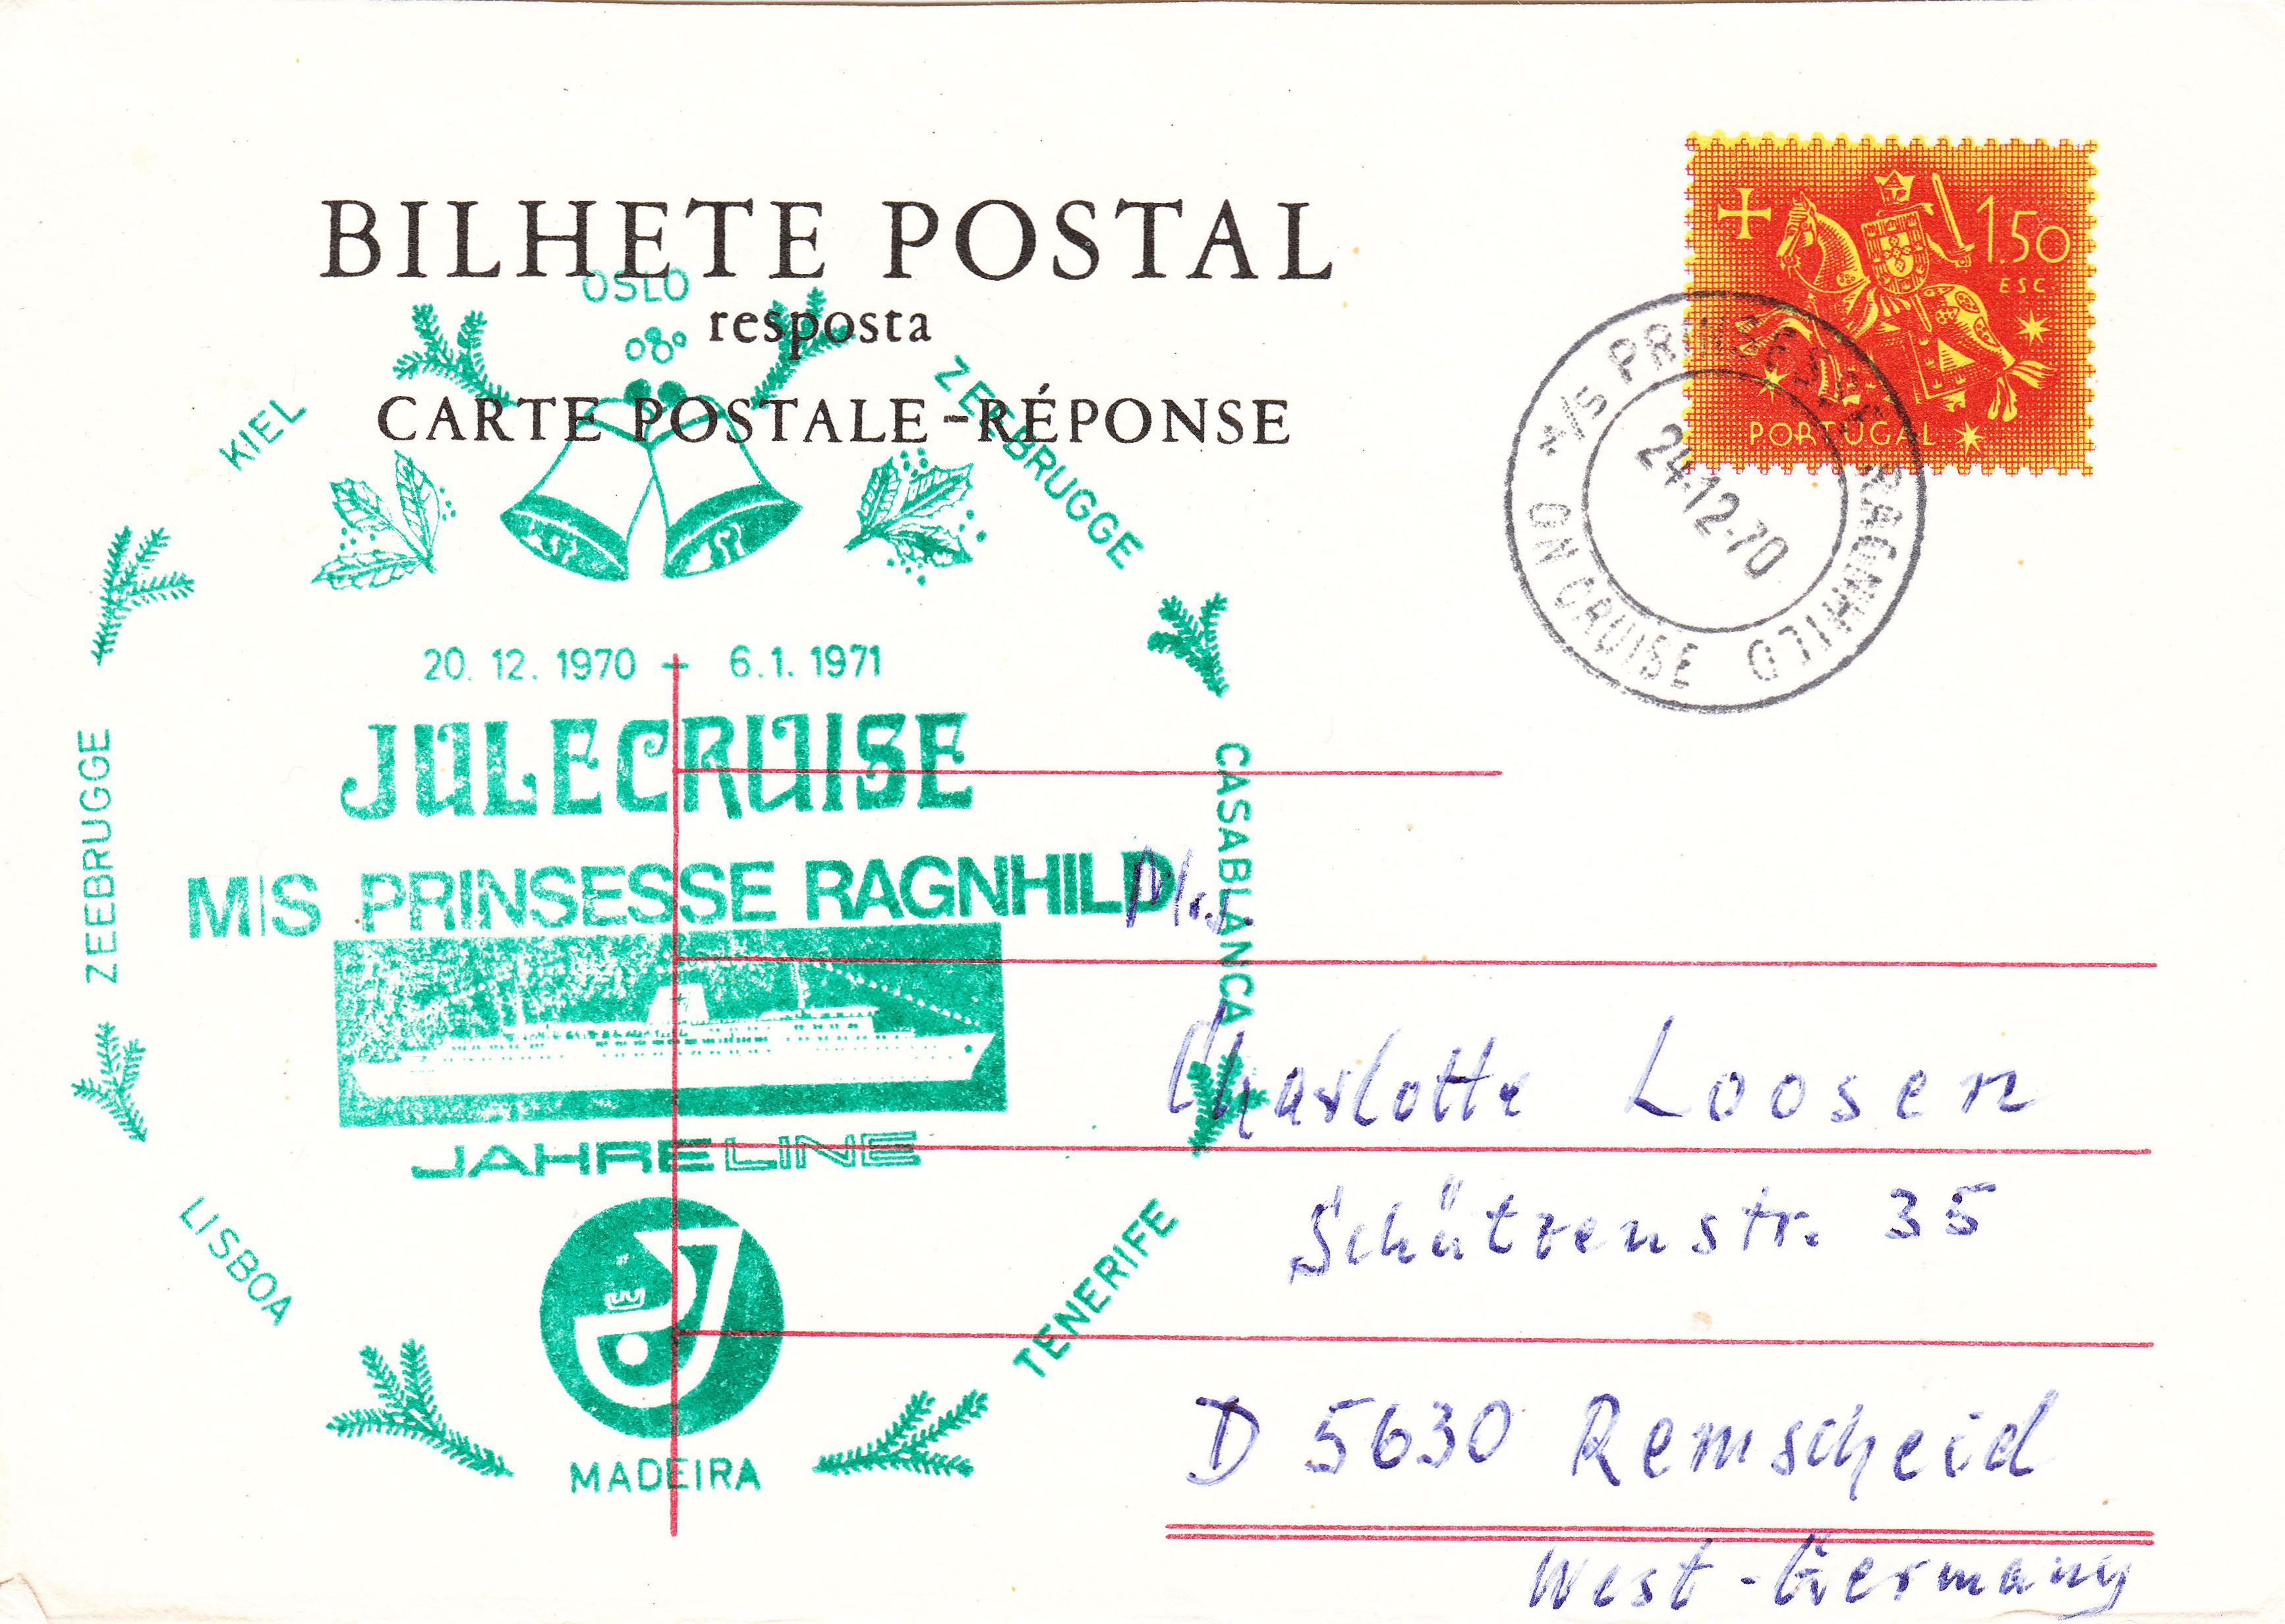 BILHETE POSTAL
resposta
CARTE POSTALE-RÉPONSE
1.50
ESC
PORTUGAL
M/S PRINSESSE RAGNHILD
ON CRUISE
24-12-70
OSLO
ZEEBRUGGE
CASABLANCA
TENERIFE
MADEIRA
LISBOA
ZEEBRUGGE
KIEL
20. 12. 1970 - 6.1. 1971
JULECRUISE
M|S PRINSESSE RAGNHILD
JAHRE LINE
Mrs.
Charlotte Loosen
Schützenstr. 35
D 5630 Remscheid
West-Germany